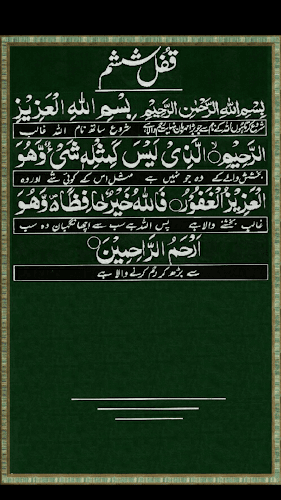 قفل ششم
بِسْمِ اللهِ الرَّحْمٰنِ الرَّحِيْمِ بِسْمِ اللهِ الْعَزِيْزِ
شروع اللہ کے نام سے جو بڑا مہربان نہایت رحم والا ہے شروع ساتھ نام اللہ غالب
الرَّحِيْمِ الَّذِيْ لَيْسَ كَمِثْلِهٖ شَيْءٌ وَّهُوَ
بخشش والے کے وہ جو نہیں ہے مثل اس کے کوئی شے اور وہ
الْعَزِيْزُ الْغَفُوْرُ فَاللهُ خَيْرٌ حَافِظًا وَّهُوَ
غالب بخشنے والا ہے پس اللہ ہے سب سے اچھا نگہبان وہ سب
اَرْحَمُ الرَّاحِمِيْنَ
سے بڑھ کر رحم کرنے والا ہے